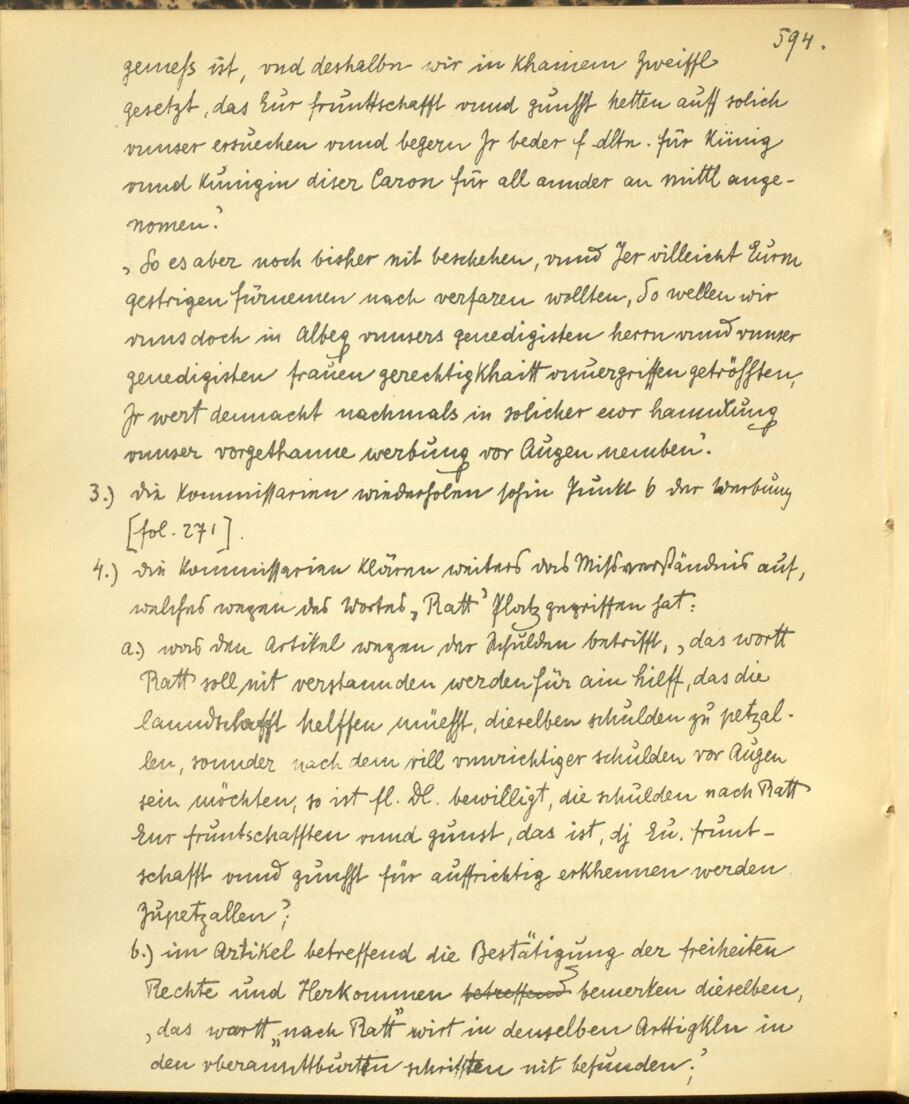 594.
gemeſs ist, vnd deshalbn wir in khainem Zweiffl
gesetzt, das Eur fruntschafft vnnd gunsst hetten auff solich
vnnser ersuechen vnnd begern Jr beder f. dltn. für Künig
vnnd Künigin diser Caron für all annder an mittl ange-
nomen.'
„So es aber noch bisher nit beschehen, vnnd Jer villeicht Eurm
gestrigen fürnemen nach verfaren wollten, So wellen wir
vnns doch in Albeg vnnsers genedigisten herrn vnnd vnnser
genedigisten frauen gerechtigkhaitt vnuergriffen getrößten,
Jr wert dennacht nachmals in solicher eur hanndlung
vnnser vorgethanne werbung vor Augen nemben'.
3.) die Kommissarien wiederholen sohin Punkt 6 der Werbung
[fol. 271].
4.) die Kommissarien klären weiters das Missverständnis auf,
welches wegen des Wortes „Ratt' Platz gegriffen hat:
a.) was den Artikel wegen der Schulden betrifft, „das wortt
Ratt soll nit verstannden werden für ain hilff, das die
lanndschafft helffen müesst, dieselben schulden zu petzal-
len, sonnder nach dem vill vnnrichtiger schulden vor Augen
sein möchten, so ist fl. Dl. bewilligt, die schulden nach Ratt
Eur fruntschafften vnnd gunst, das ist, dj Eu. frunt-
schafft vnnd gunsst für auffrichtig erkhennen werden
Zupetzallen';
b.) im Artikel betreffend die Bestätigung der freiheiten
Rechte und Herkommen betreffend bemerken dieselben,
„das wortt „nach Ratt" wirt in denselben Arttigkln in
den vberanttburtten schrifften nit befunden;'